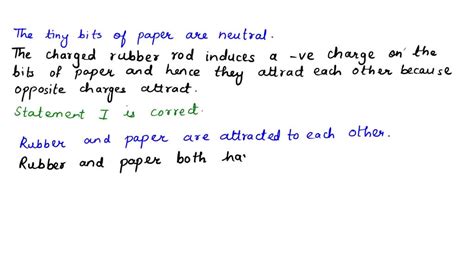 The tiny bits of paper are neutral.
The charged rubber rod induces a -ve charge on the
bits of paper and hence they attract each other because
opposite charges attract.
Statement I is correct.
Rubber and paper are attracted to each other.
Rubber and paper both ha